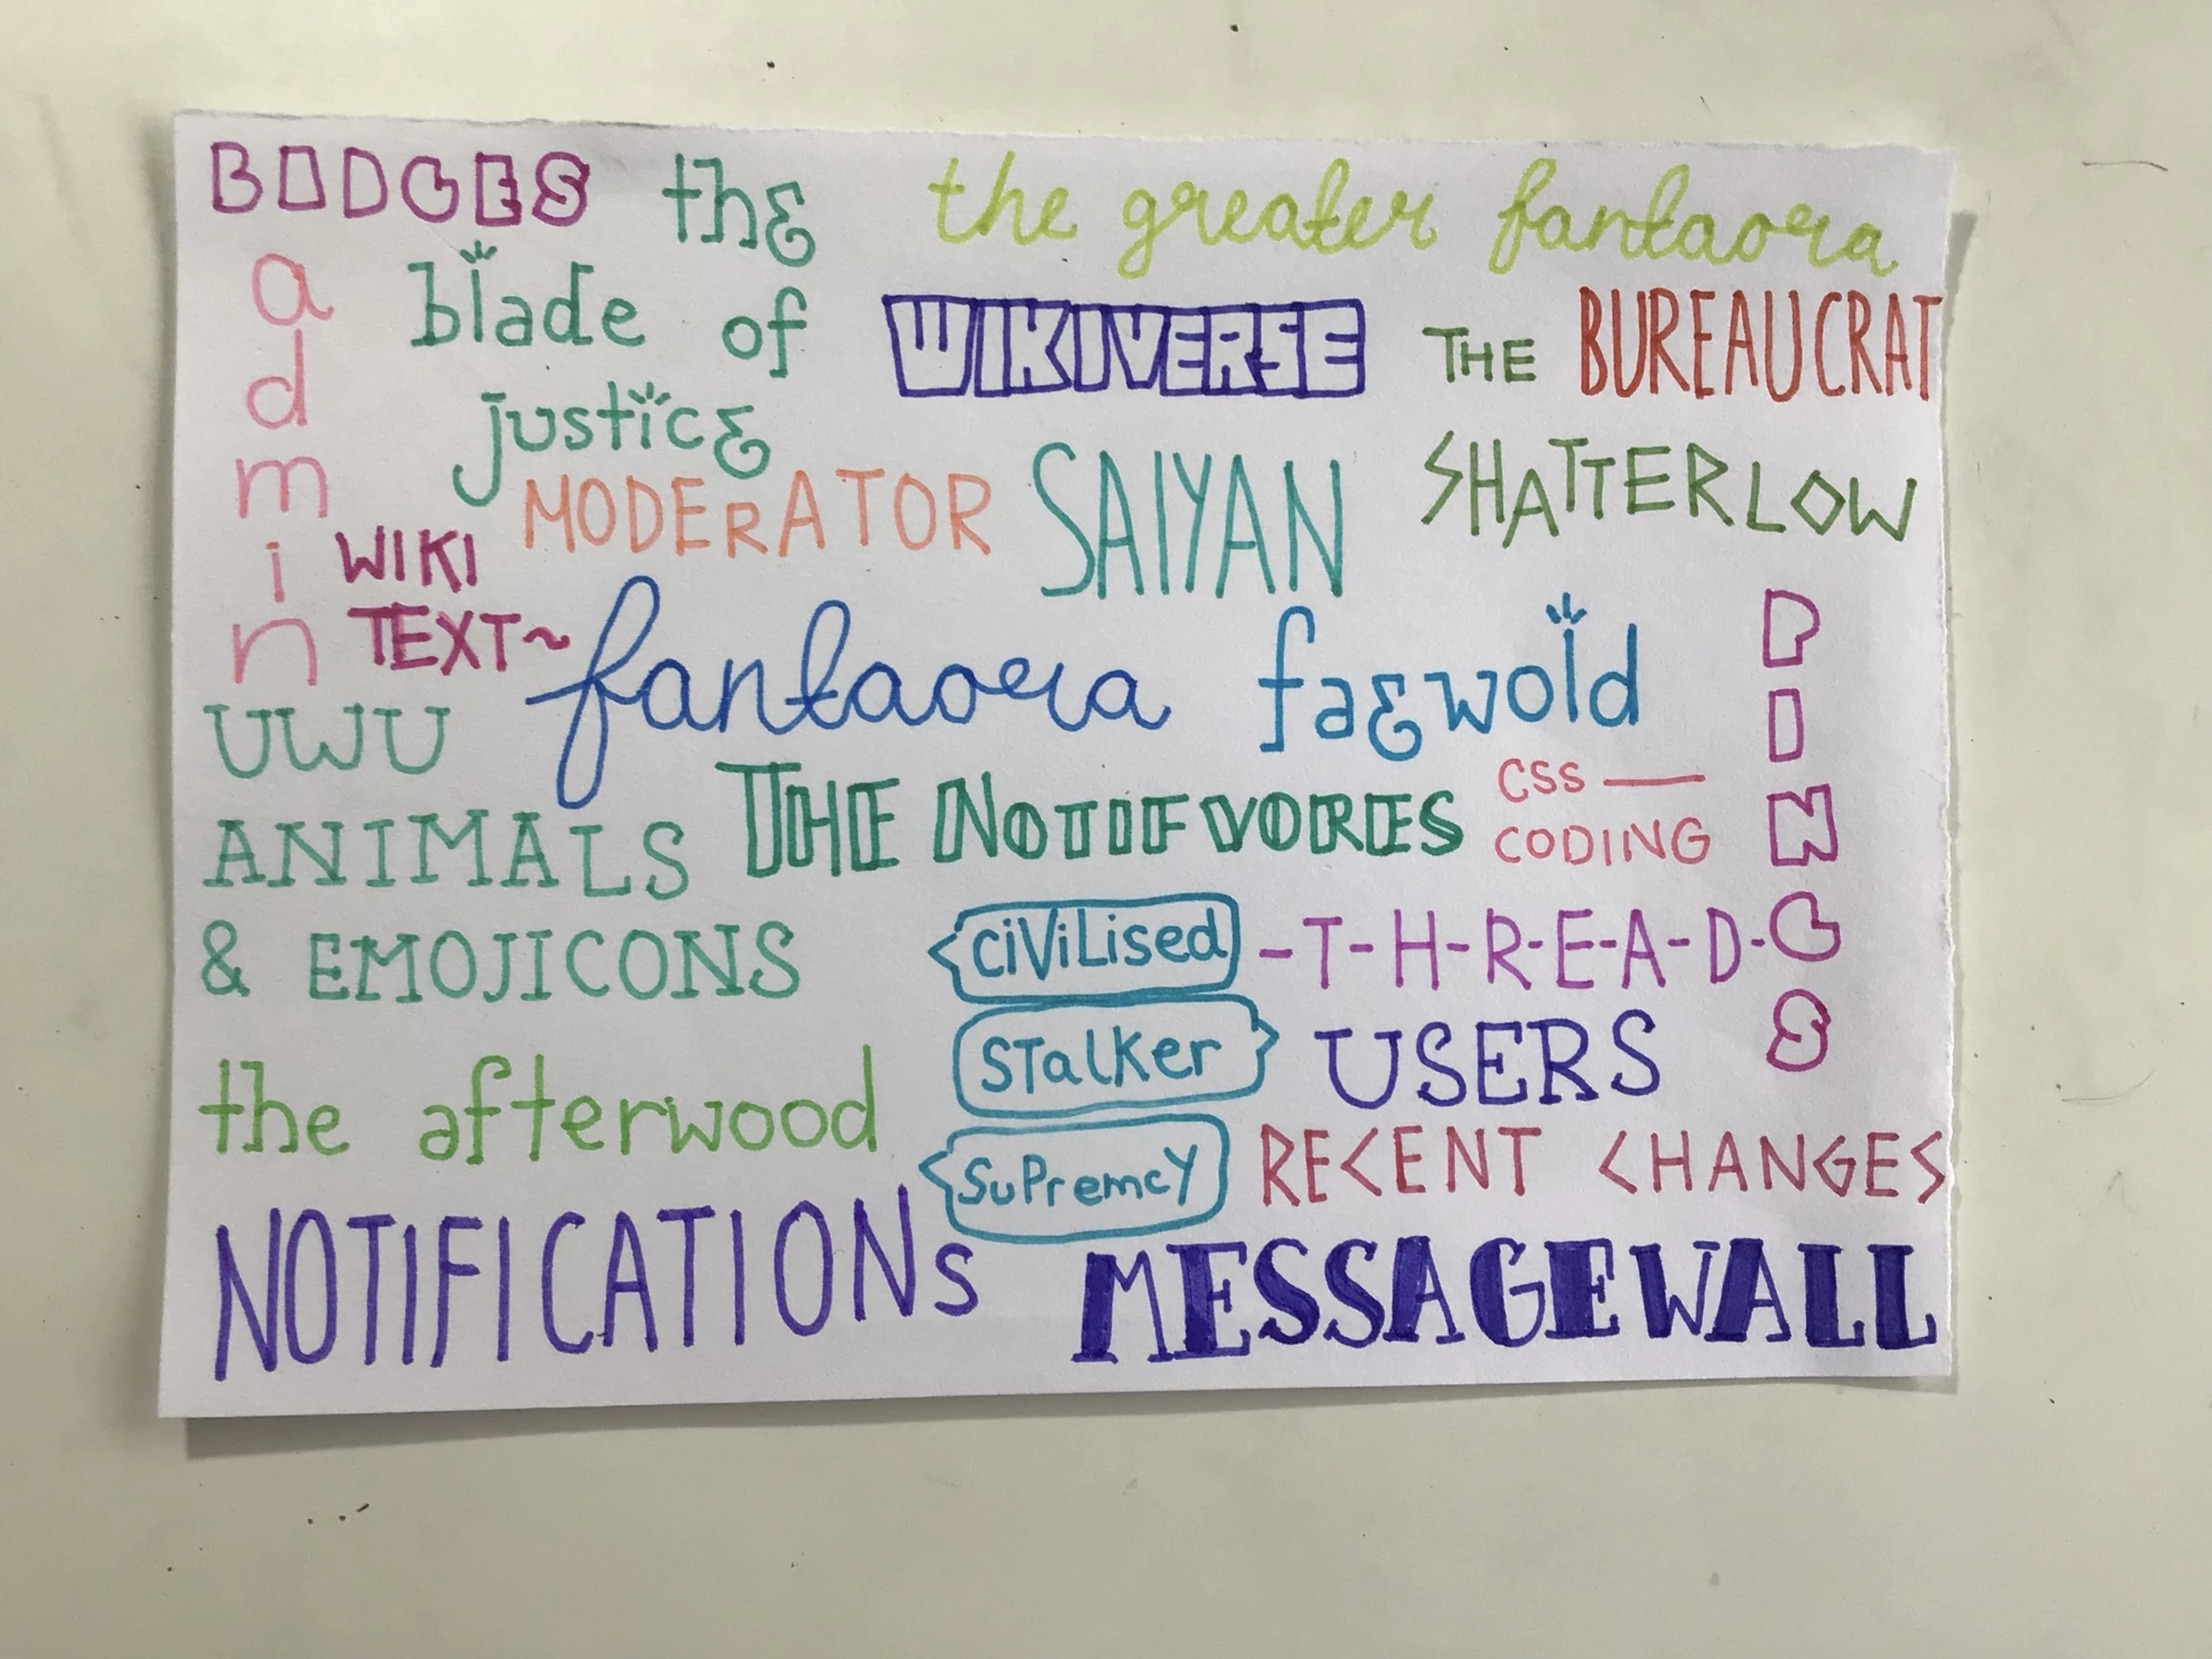 BADGES
the
blade of
justice
the greater fantaora
WIKIVERSE
THE BUREAUCRAT
admin
MODERATOR
SAIYAN
SHATTERLOW
WIKI
TEXT~
fantaora
faewold
PINGS
UWU
ANIMALS
& EMOJICONS
THE NOTIFVORES
CSS —
CODING
CiViLised
-T-H-R-E-A-D-
STalKer
USERS
the afterwood
SuPremcY
RECENT CHANGES
NOTIFICATIONs
MESSAGEWALL